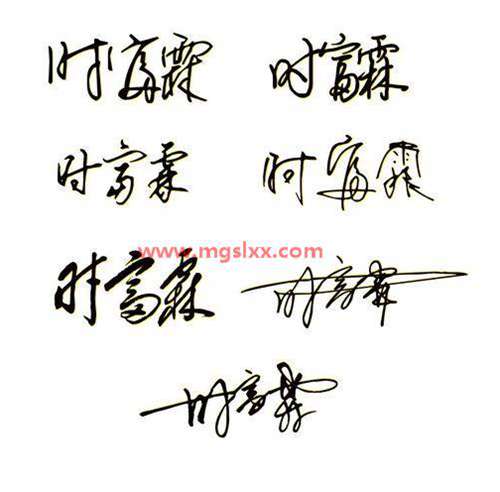 时富霖 时富霖
时富霖 时富霖
www.mgslxx.com
时富霖 时富霖
时富霖